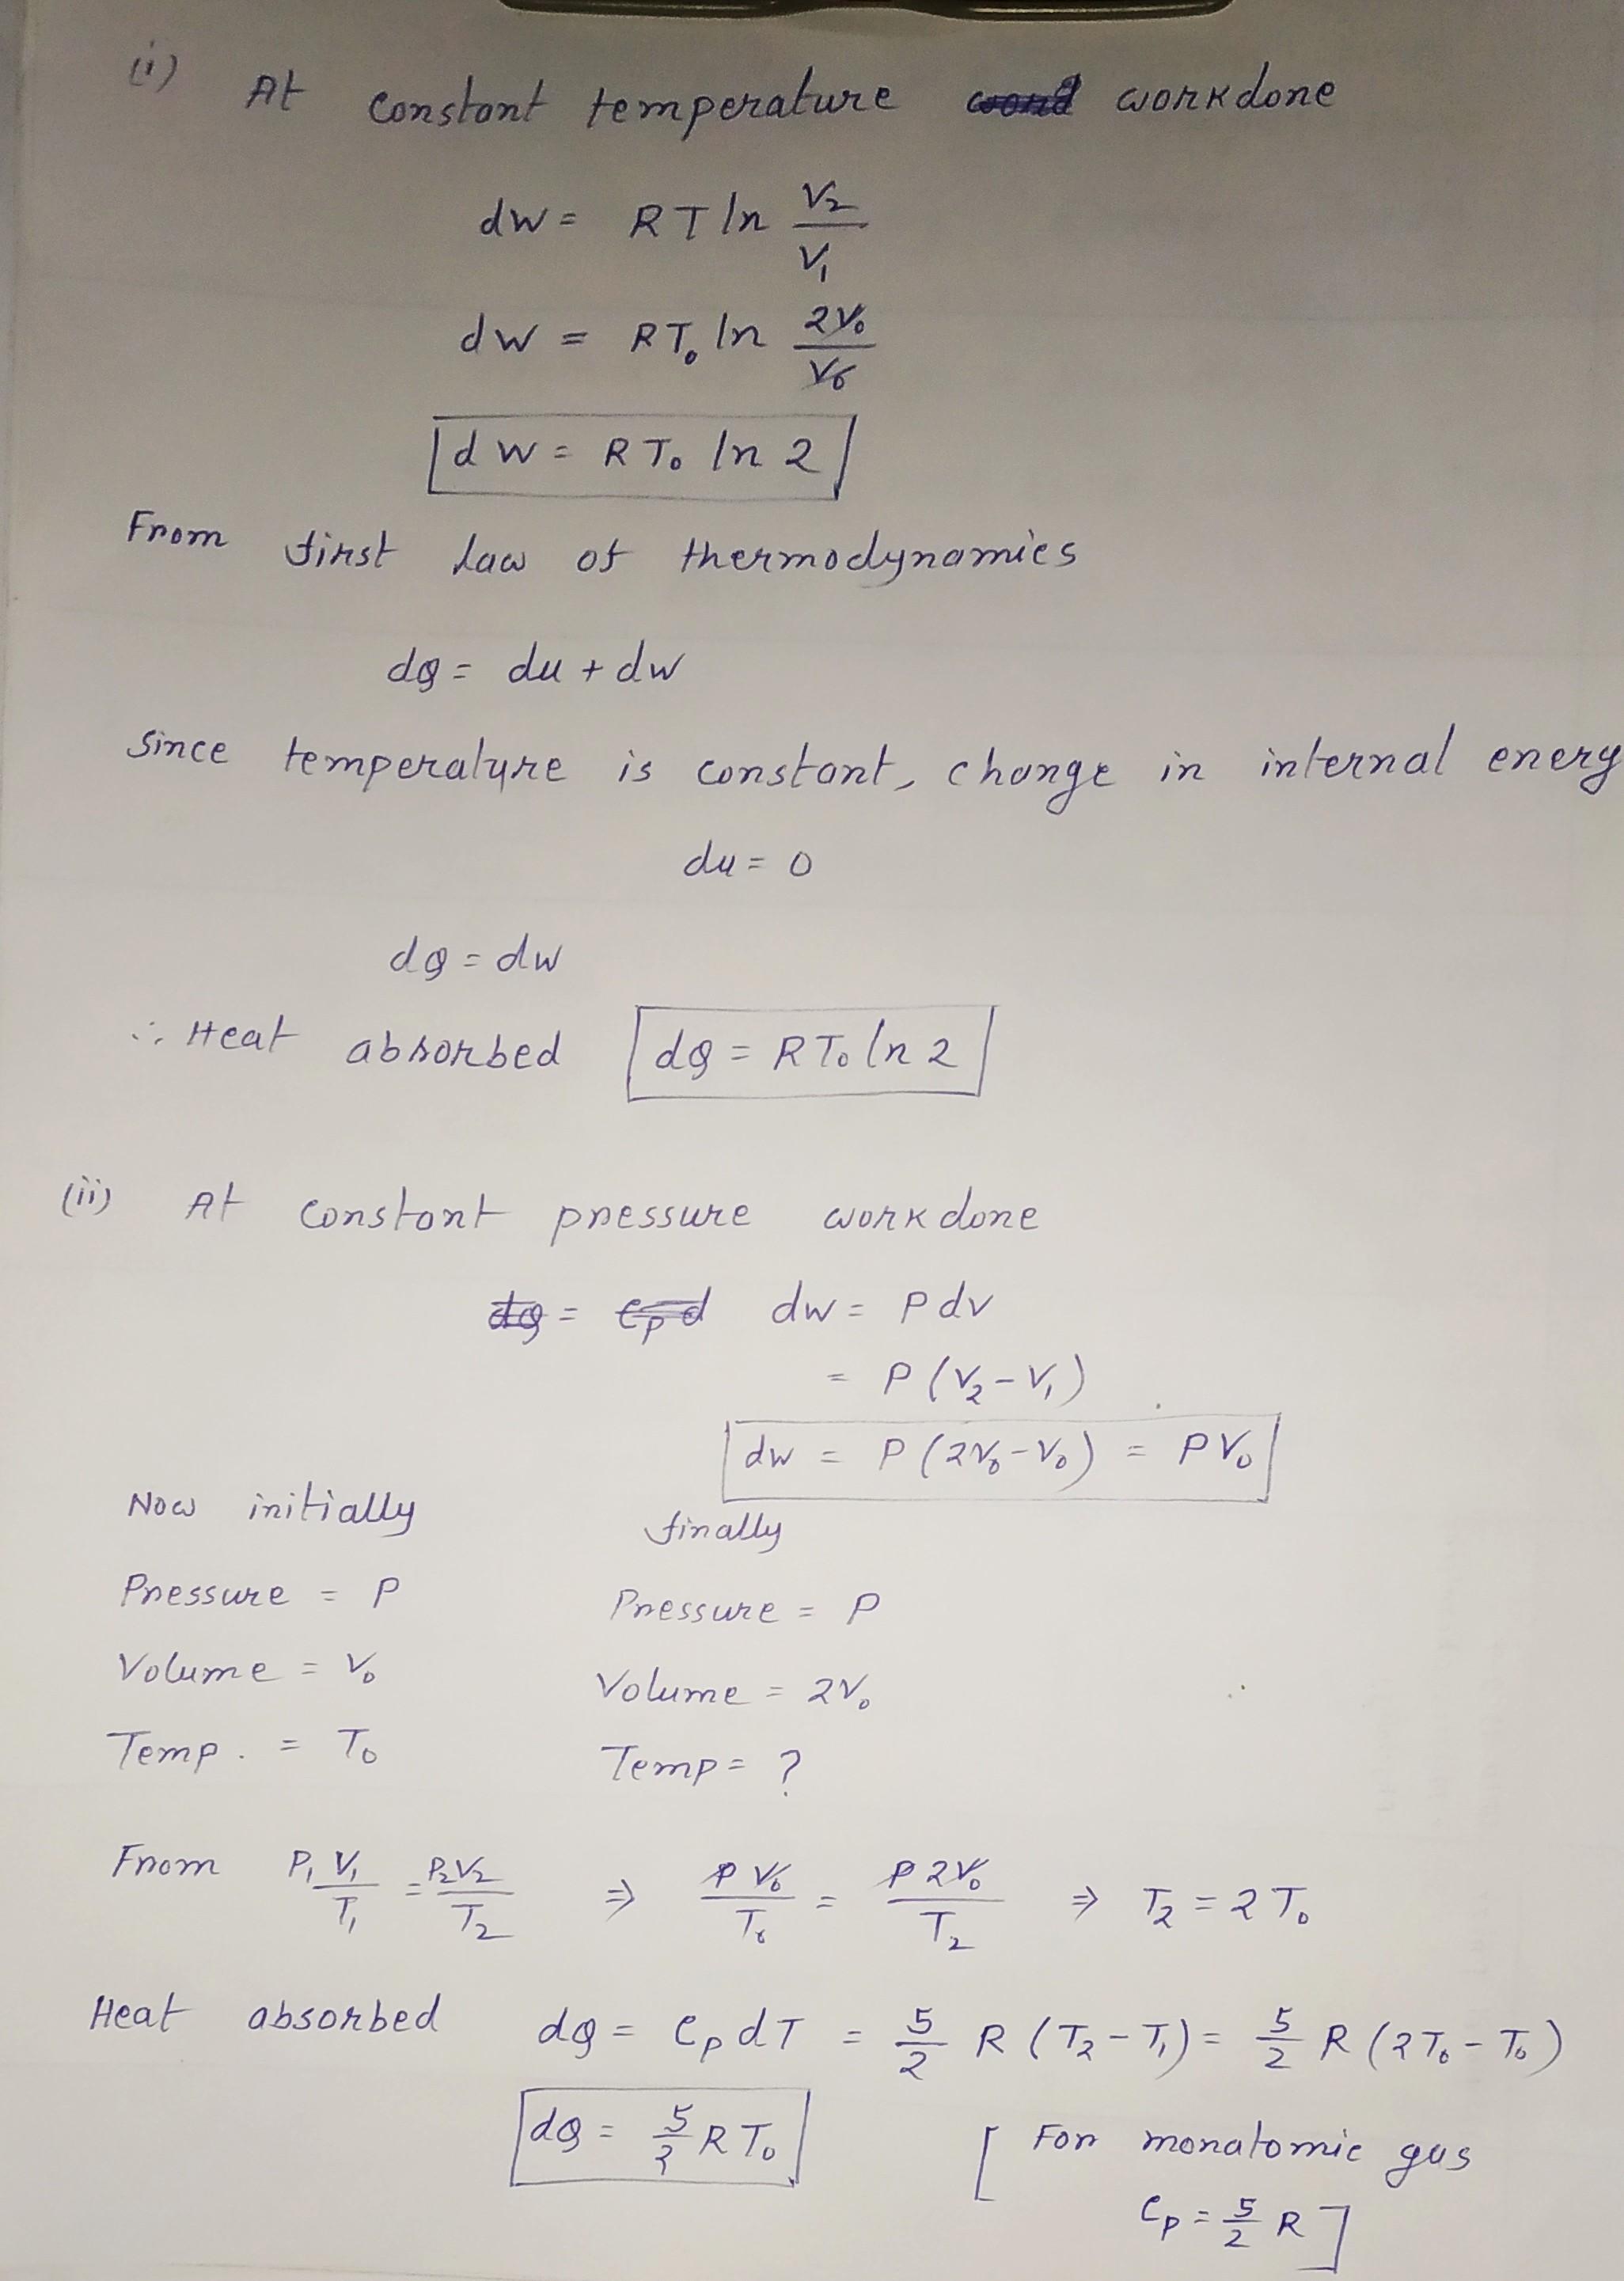 (i) At constant temperature workdone
dw = RT ln V₂/V₁
dw = RT₀ ln 2V₀/V₀
dw = RT₀ ln 2
From first law of thermodynamics
dQ = du + dw
Since temperature is constant, change in internal energy
du = 0
dQ = dw
∴ Heat absorbed dQ = RT₀ ln 2
(ii) At constant pressure workdone
dQ = Cp d dw = P dv
= P (V₂ - V₁)
dw = P (2V₀ - V₀) = PV₀
Now initially finally
Pressure = P Pressure = P
Volume = V₀ Volume = 2V₀
Temp. = T₀ Temp = ?
From P₁V₁/T₁ = P₂V₂/T₂ ⇒ PV₀/T₀ = P2V₀/T₂ ⇒ T₂ = 2T₀
Heat absorbed dQ = Cp dT = 5/2 R (T₂ - T₁) = 5/2 R (2T₀ - T₀)
dQ = 5/2 RT₀ [ For monatomic gas
Cp = 5/2 R ]